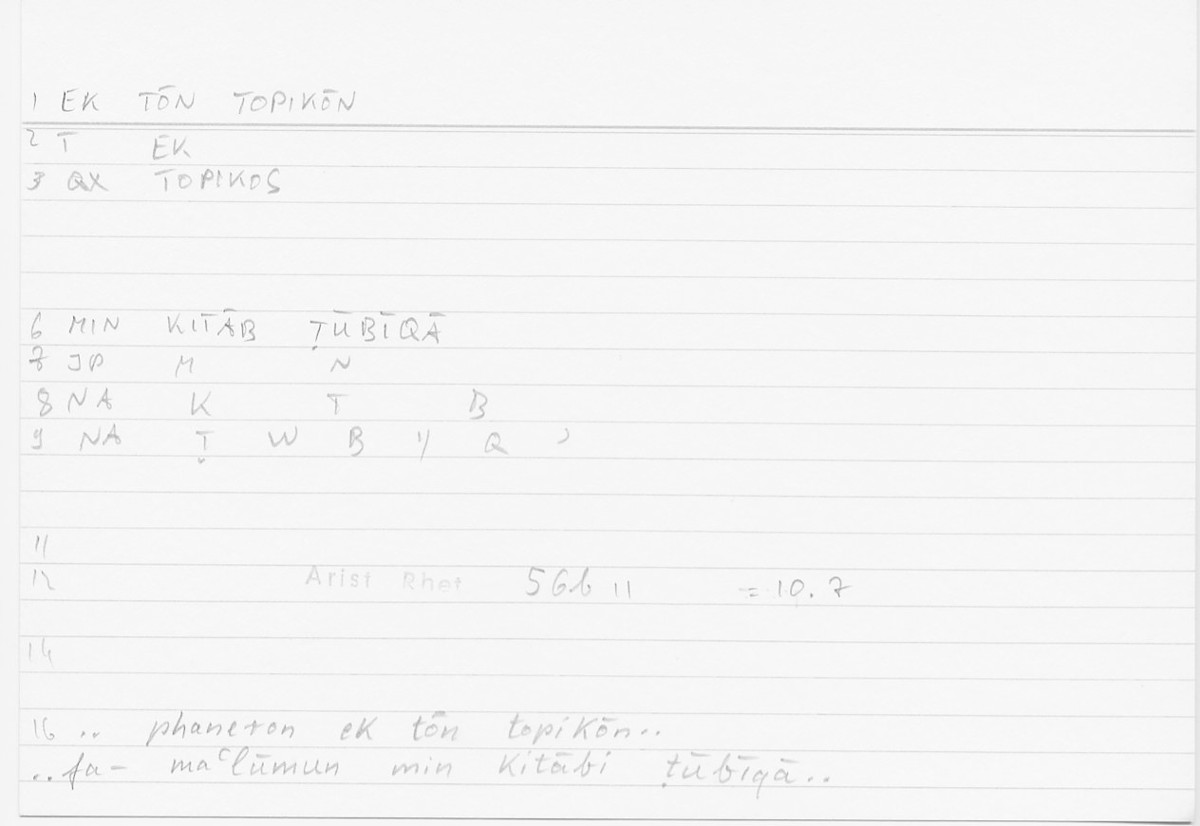 1 EK TŌN TOPIKŌN
2 T EK
3 QX TOPIKOS
6 MIN KITĀB ṬŪBĪQĀ
7 JP M N
8 NA K T B
9 NA Ṭ W B Y Q ʾ
11
12 Arist Rhet 56b 11 = 10.7
14
16 .. phaneron ek tōn topikōn..
..fa- maʿlūmun min kitābi ṭūbīqā..